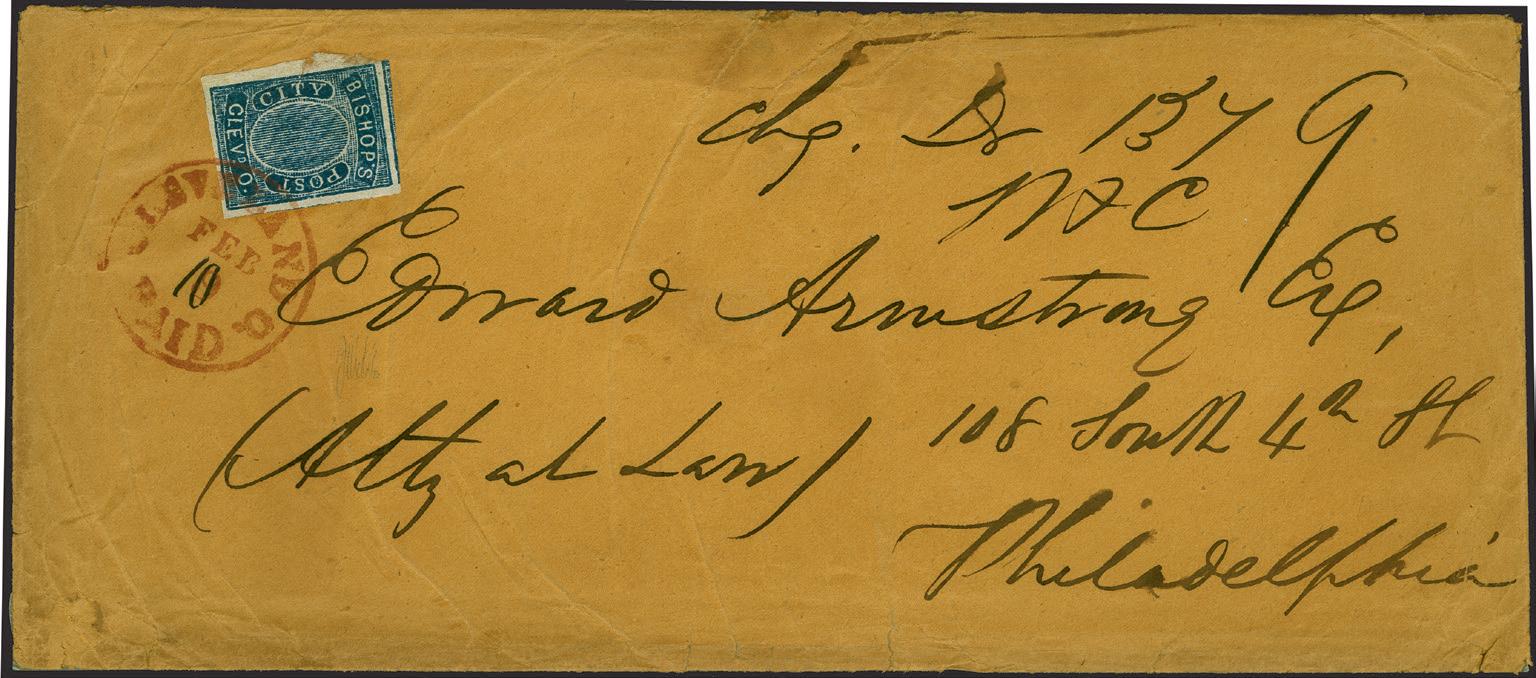 BISHOP'S
CITY
POST
CLEVD O.
chg. Dr 137 9
N & C
CLEVELAND O.
FEB
10
PAID
Edward Armstrong Esq,
(Atty at Law)
108 South 4th St
Philadelphia